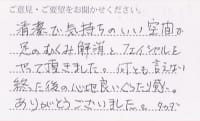 ご意見・ご要望をお聞かせください。
清潔で気持ちのいい空間で
足のむくみ解消と、フェイシャルを
やって頂きました。何とも言えない
終った後の心地良いぐったり感。
ありがとうございました。